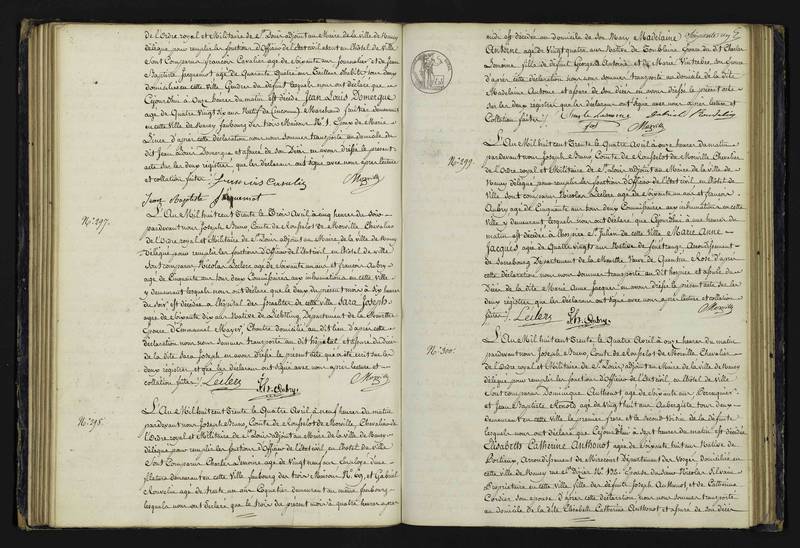 de l'Ordre royal et Militaire de St. Louis adjoint au Maire de la ville de Nancy
délégué pour remplir les fonctions d'Officier de l'Etat civil, au Hôtel de Ville
Sont Comparus François Cavalier agé de soixante ans Journalier et Jean
Baptiste Jacquemot agé de Quarante Quatre ans Tailleur d'habits tous deux
domiciliés en cette Ville, Gendres du défunt lesquels nous ont déclaré que
Cejourd'hui à Onze heures du matin est décédé Jean Louis Domergue
agé de Quatre vingt dix ans Natif de Marchand fruitier demeurant
en cette Ville de Nancy faubourg des trois Maisons No. 1. Epoux de Marie
d'après cette déclaration nous nous sommes transporté au domicile du
dit Jean Louis Domergue et assuré de son Décès en avons dressé le présent
acte sur les deux régistres que les déclarants ont signé avec nous après lecture
et collation faites./.
Jean Baptiste Jacquemot
No. 297.
L'An Mil huit cent Trente le Trois Avril à cinq heures du soir
pardevant nous Joseph Bruno, Comte de Rousselot de Morville, Chevalier
de l'Ordre royal et Militaire de St. Louis adjoint au Maire de la ville de Nancy
Délégué pour remplir les fonctions d'Officier de l'Etat civil, en l'hôtel de ville
sont comparus Nicolas Leclerc agé de soixante un ans et François Aubry
agé de Cinquante ans tous deux Commissaires aux inhumations en cette Ville
y demeurant lesquels nous ont déclaré que le deux du présent mois à six heures
du soir est décédée à l'hôpital des Israélites de cette ville Sara Joseph
agée de soixante dix ans Native de Département de la Moselle
Epouse d'Emmanuel Mayer, Chantre domicilié au dit lieu d'après cette
déclaration nous nous sommes transporté au dit hôpital et assuré du Décès
de la dite Sara Joseph en avons dressé le présent acte qui a été écrit sur les
deux régistres, et que les déclarants ont signé avec nous après lecture et
collation faites./. Leclerc
Aubry
No. 298.
L'An Mil huit cent Trente le Quatre Avril à neuf heures du matin
pardevant nous Joseph Bruno, Comte de Rousselot de Morville, Chevalier de
l'Ordre royal et Militaire de St. Louis, adjoint au Maire de la Ville de Nancy
délégué pour remplir les fonctions d'Officier de l'Etat civil, en l'hôtel de ville
Sont Comparus Charles Lemoine agé de Vingt neuf ans Employé
demeurant en cette Ville faubourg des trois Maisons No. et Gabriel
agé de trente un ans Coquetier demeurant au même faubourg
lesquels nous ont déclaré que le trois du présent mois à quatre heures après
midi est décédée au domicile de son Mary Madelaine
Antoine agée de Vingt quatre ans Native de Epouse du dit Charles
Lemoine fille de défunt George Antoine et de Marie son Epouse
d'après cette déclaration nous nous sommes transporté au domicile de la dite
Madelaine Antoine et assuré de son Décès en avons dressé le présent acte
sur les deux régistres que les déclarants ont signé avec nous après lecture et
Collation faites./.
No. 299.
L'An Mil huit cent Trente le Quatre Avril à onze heures du matin
pardevant nous Joseph Bruno Comte de Rousselot de Morville Chevalier
de l'Ordre royal et Militaire de St. Louis adjoint au Maire de la ville de
Nancy délégué pour remplir les fonctions d'Officier de l'Etat civil, en l'hôtel de
Ville sont comparus Nicolas Leclerc agé de soixante un ans et François
Aubry agé de Cinquante ans tous deux Commissaires aux inhumations en cette
Ville y demeurant, lesquels nous ont déclaré que Cejourd'hui à une heure du
matin est décédée à l'hospice St. Julien de cette Ville Marie Anne
Jacques agée de Quatre vingt ans Native de Arrondissement
de Sarrebourg Département de la Meurthe Veuve de Quentin Rose d'après
cette déclaration nous nous sommes transporté au dit hospice et assuré du
Décès de la dite Marie Anne Jacques en avons dressé le présent acte sur les
deux régistres, que les déclarants ont signé avec nous après lecture et collation
faites./. Leclerc Aubry
No. 300.
L'An Mil huit cent Trente le Quatre Avril à onze heures du matin
pardevant nous Joseph Bruno, Comte de Rousselot de Morville, Chevalier
de l'Ordre royal et Militaire de St. Louis, adjoint au Maire de la Ville de Nancy
délégué pour remplir les fonctions d'Officier de l'Etat civil, en l'hôtel de Ville
Sont comparus Dominique Anthonot agé de soixante ans Perruquier
et Jean Baptiste agé de Vingt huit ans Aubergiste tous deux
demeurant en cette Ville le premier frère et le second Voisin de la défunte
lesquels nous ont déclaré que Cejourd'hui à sept heures du matin est décédée
Elisabeth Catherine Anthonot agée de soixante huit ans Native de
Portieux, Arrondissement de Mirecourt Département des Vosges Domiciliée en
cette Ville de Nancy rue St. Dizier No. Epouse du Sieur Nicolas Silvain
Propriétaire en cette Ville, fille des défunts Joseph Anthonot et de Catherine
Cordier son épouse d'après cette déclaration nous nous sommes transporté
au domicile de la dite Elisabeth Catherine Anthonot et assuré de son Décès